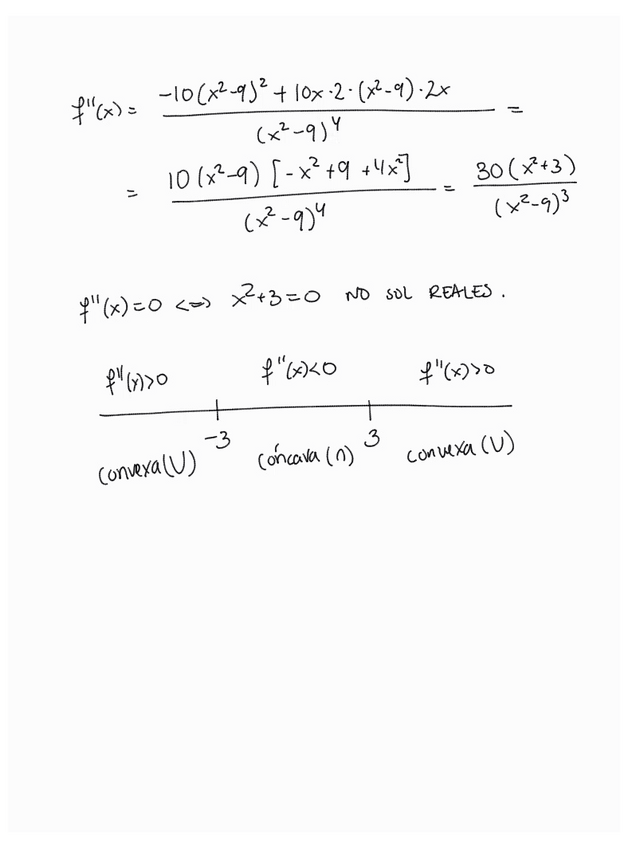 f''(x) = \frac{-10(x²-9)² + 10x·2·(x²-9)·2x}{(x²-9)⁴} =
= \frac{10(x²-9)[-x²+9+4x²]}{(x²-9)⁴} = \frac{30(x²+3)}{(x²-9)³}
f''(x)=0 <=> x²+3=0 NO SOL REALES.
f''(x)>0 f''(x)<0 f''(x)>0
-3 3
convexa(U) cóncava(∩) convexa(U)